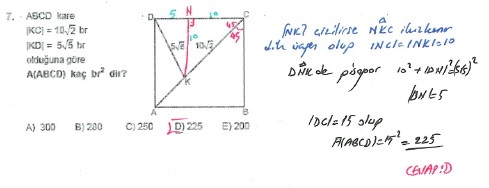 7. ABCD kare
|KC| = 10√2 br
|KD| = 5√5 br
olduğuna göre
A(ABCD) kaç br² dir?
D 5 N 10 C
10
45
45
5√5 10√2
K
A B
A) 300 B) 280 C) 250 D) 225 E) 200
[NK] çizilirse NKC ikizkenar
dik üçgen olup |NC|=|NK|=10
DNK de pisagor 10²+|DN|²=(5√5)²
|DN|=5
|DC|=15 olup
A(ABCD)=15²=225
CEVAP:D